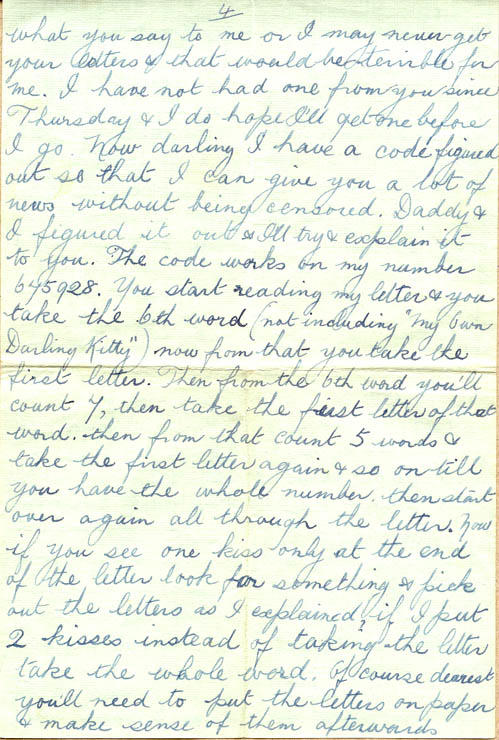 4
what you say to me or I may never get
your letters & that would be terrible for
me. I have not had one from you since
Thursday & I do hope I'll get one before
I go. Now darling I have a code figured
out so that I can give you a lot of
news without being censored. Daddy &
I figured it out & I'll try & explain it
to you. The code works on my number
675928. You start reading my letter & you
take the 6th word (not including "My Own
Darling Kitty") now from that you take the
first letter. Then from the 6th word you'll
count 7, then take the first letter of that
word. then from that count 5 words &
take the first letter again & so on till
you have the whole number. then start
over again all through the letter. Now
if you see one kiss only at the end
of the letter look for something & pick
out the letters as I explained, if I put
2 kisses instead of taking the letter
take the whole word. Of course dearest
you'll need to put the letters on paper
& make sense of them afterwards